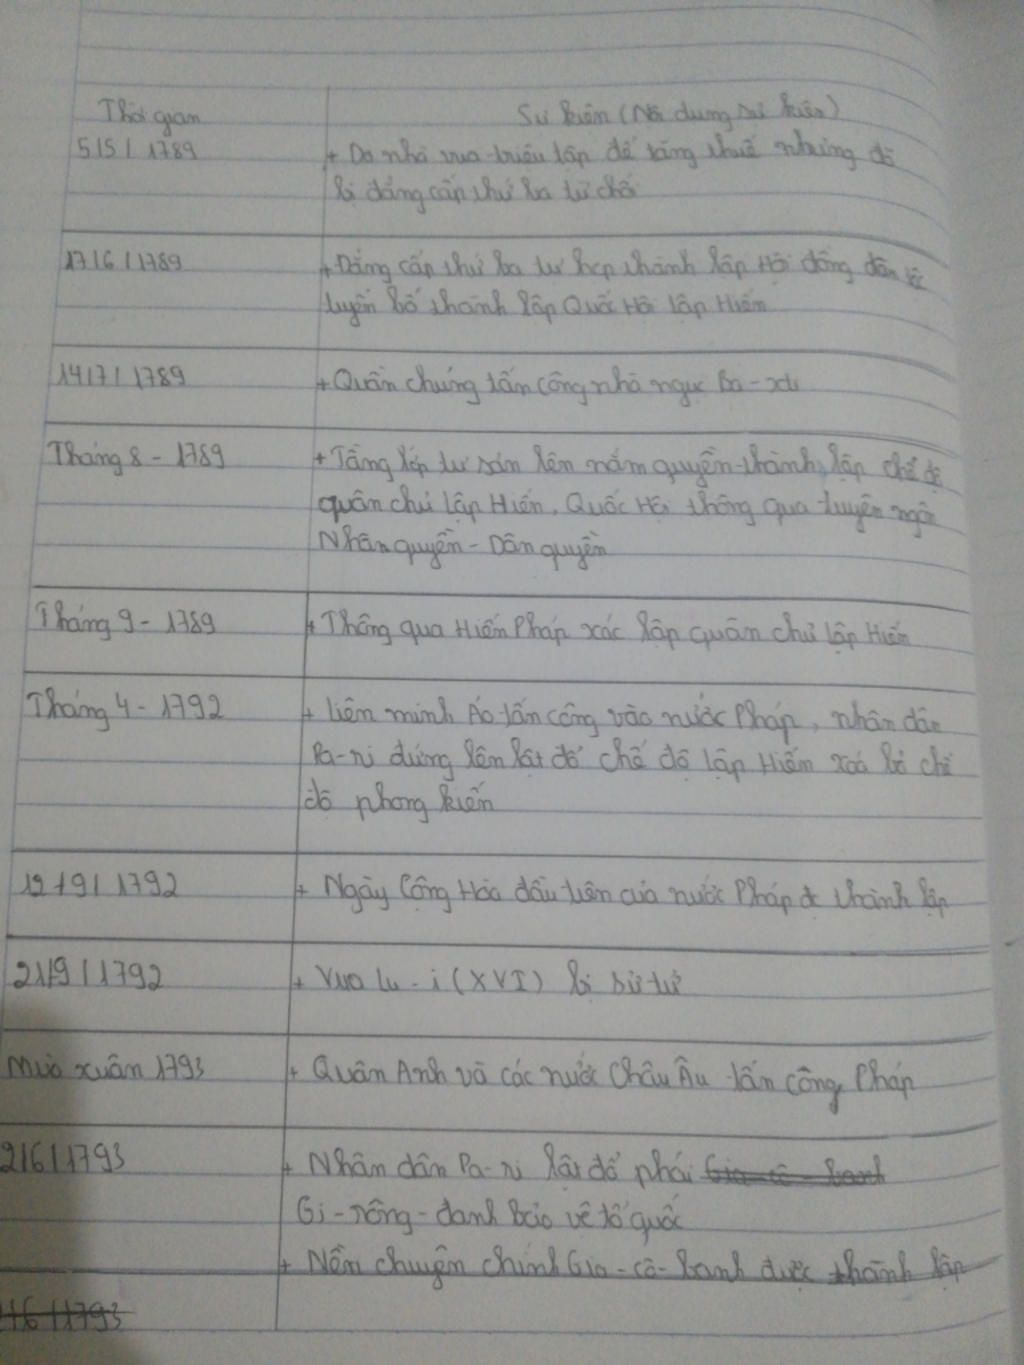 Thời gian
Sự kiện (Nội dung sự kiện)
5/5/1789
+ Do nhà vua triệu tập để tăng thuế nhưng đã
bị đẳng cấp thứ ba từ chối
17/6/1789
+ Đẳng cấp thứ ba tự họp thành lập Hội đồng dân tộc
tuyên bố thành lập Quốc Hội Lập Hiến
14/7/1789
+ Quần chúng tấn công nhà ngục Ba-xti
Tháng 8 - 1789
+ Tầng lớp tư sản lên nắm quyền thành lập chế độ
quân chủ lập Hiến, Quốc Hội thông qua tuyên ngôn
Nhân quyền - Dân quyền
Tháng 9 - 1789
+ Thông qua Hiến Pháp xác lập quân chủ lập Hiến
Tháng 4 - 1792
+ Liên minh Áo tấn công vào nước Pháp, nhân dân
Pa-ri đứng lên lật đổ chế độ lập Hiến xoá bỏ chế
độ phong kiến
12/9/1792
+ Ngày Cộng Hòa đầu tiên của nước Pháp đc thành lập
21/9/1792
+ Vua Lu-i (XVI) bị sử tử
Mùa xuân 1793
+ Quân Anh và các nước Châu Âu tấn công Pháp
2/6/1793
+ Nhân dân Pa-ri lật đổ phái Gia-cô-banh
Gi-rông-đanh bảo vệ tổ quốc
+ Nền chuyên chính Gia-cô-banh được thành lập